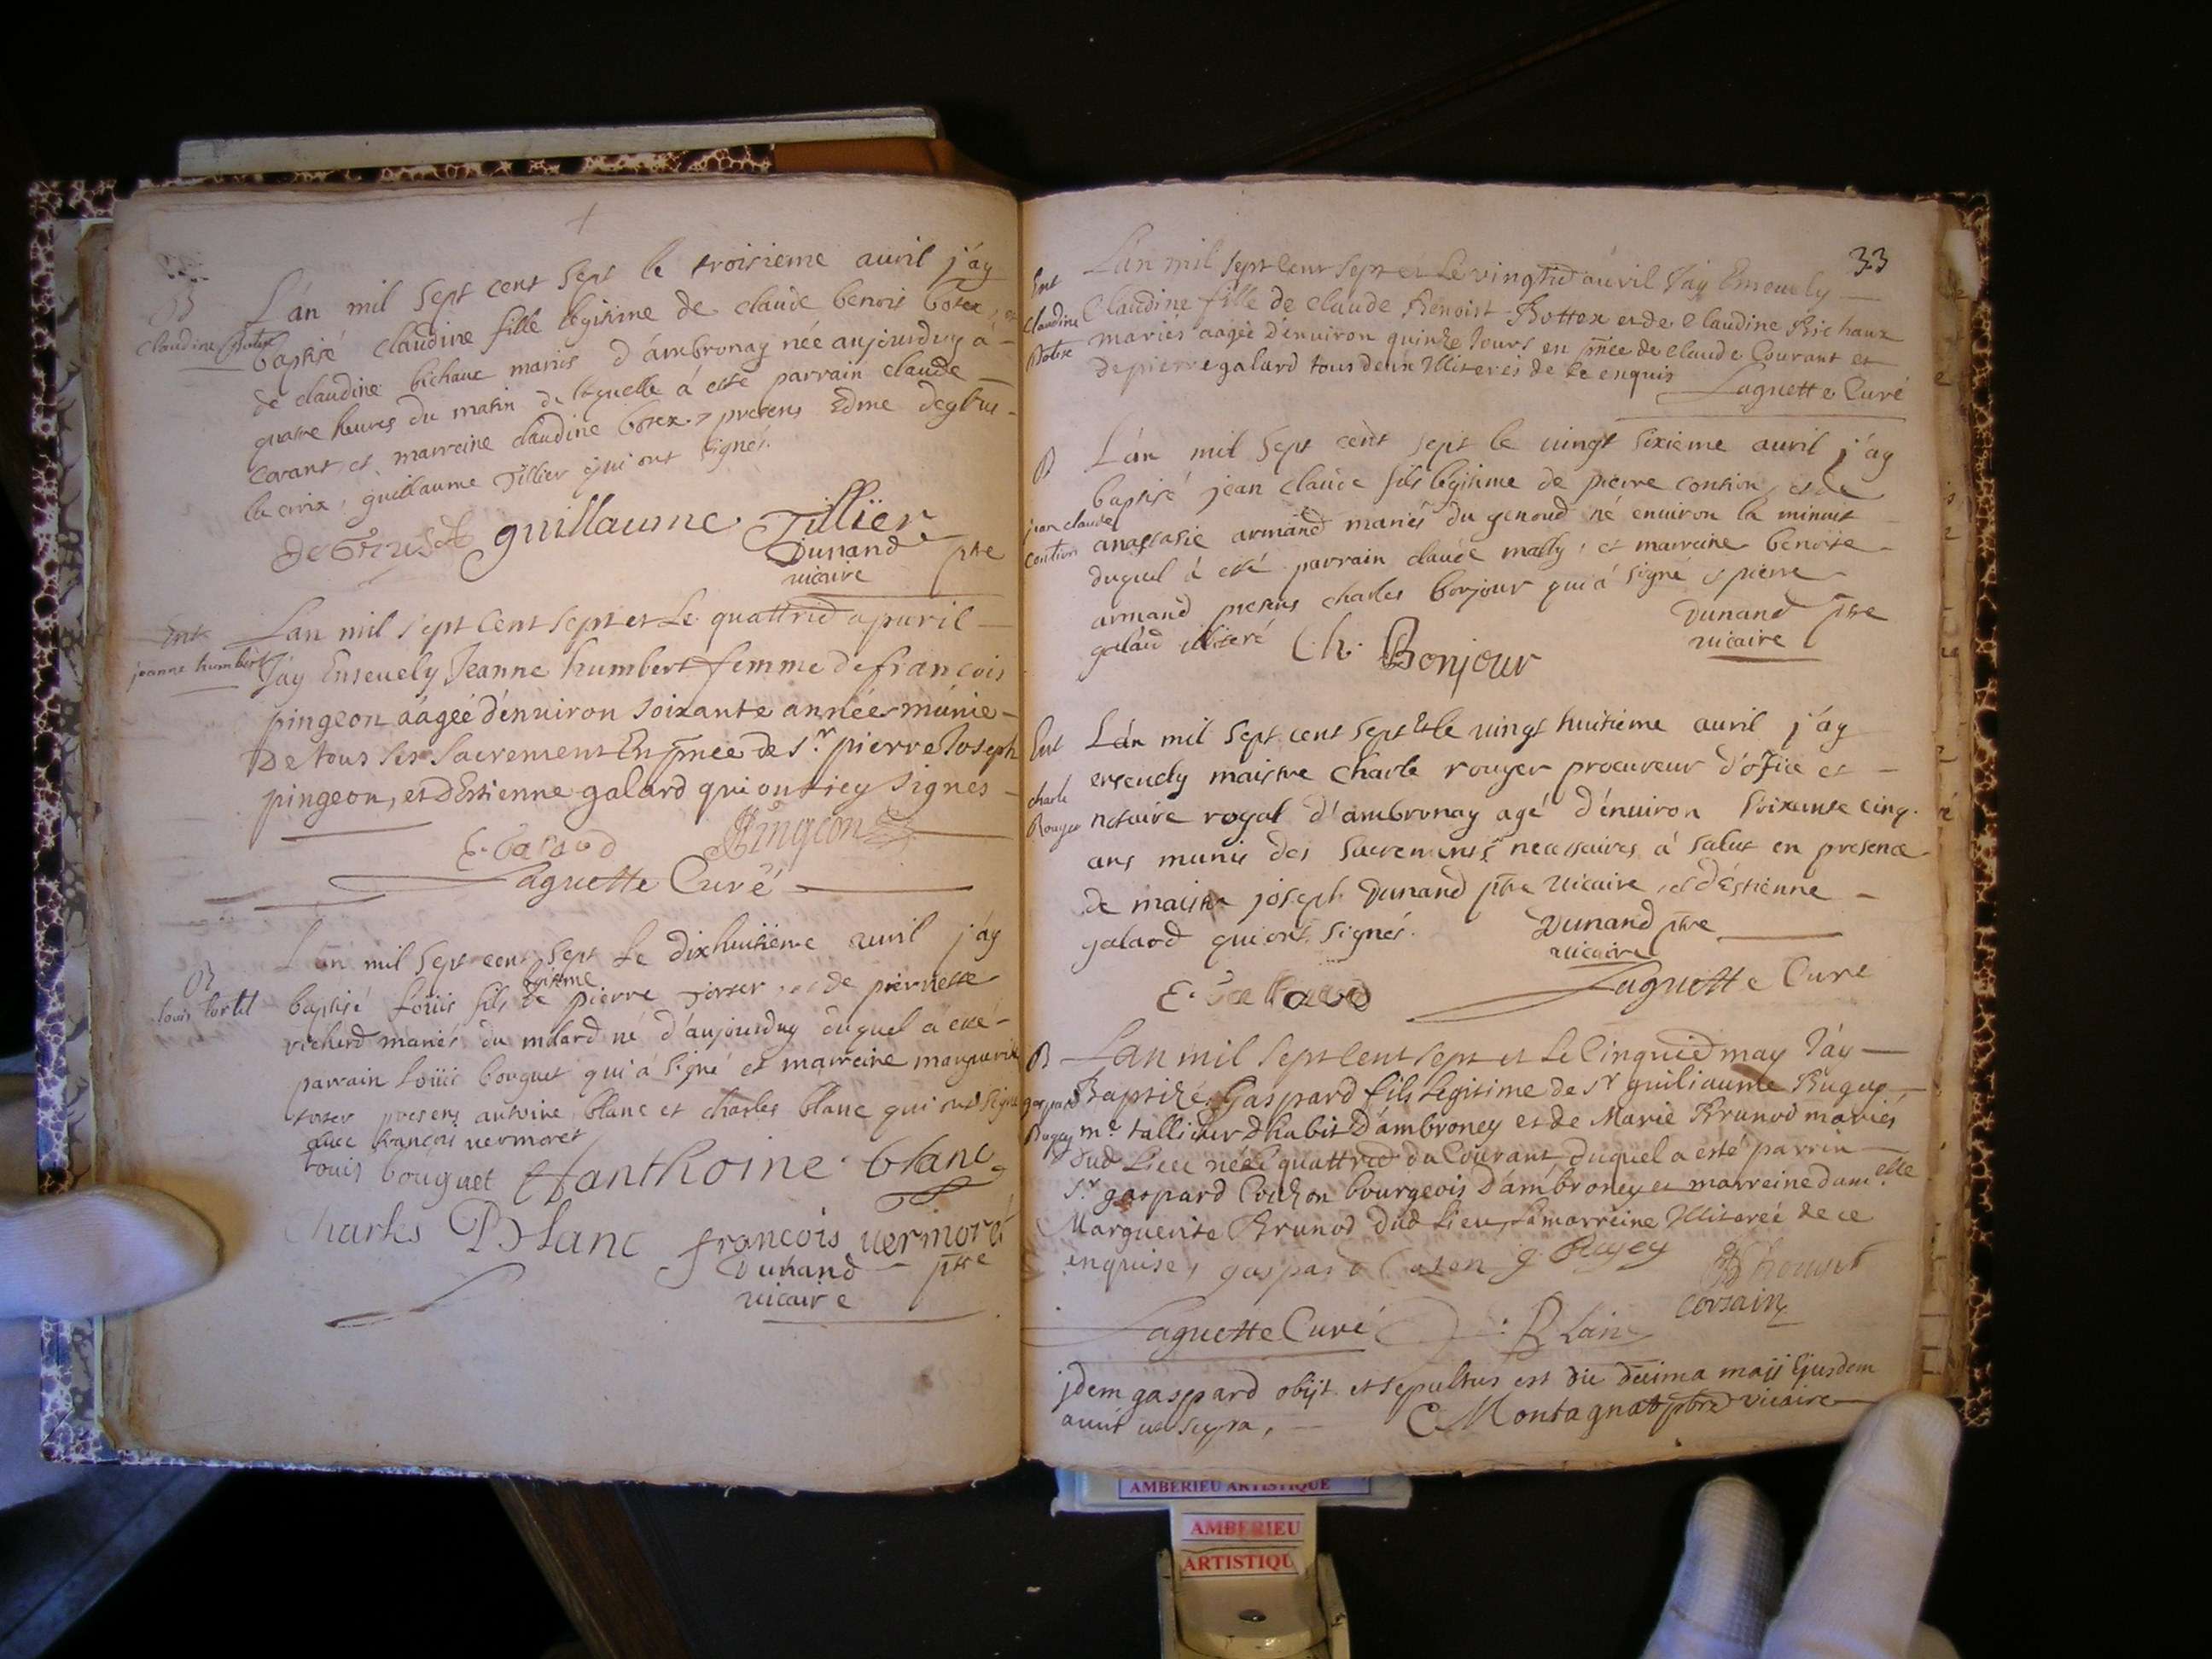 B
Claudine Botex
L'án mil sept cent sept le troisieme auril j'áy
baptisé claudine fille legitime de claude benoit botex, et
de claudine bichaux mariés d'ámbronay née aujourduy á
quatre heures du matin de laquelle á esté parrain claude
corant, et marreine claudine botex, presens Edme degbru-
la croix, guillaume Tillier qui ont signés.
guillaume Tillier
Dunand ptre
uicaire
Ent
jeanne humbert
Lan mil sept Cent sept et Le quattrie apuril
Jáy Enseuely Jeanne humbert femme de françois
pingeon áagée d'énuiron soixante années munie
De tous ses sacrement En pnce de sr. pierre Joseph
pingeon, et dEstienne galard qui ont icy signés
E. Galard Pingeon
Laguette Curé
B
Louis tortel
L'an mil sept cent sept Le dixhuitieme auril j'áy
baptisé loüis fils legitime de pierre torter, et de pierrette
richerd mariés du milard né d'aujourduy duquel á esté
parrain loüis bouguet qui á signé et marreine marguerite
torter presens antoine blanc et charles blanc qui ont signé
auec françois uermoret
louis bouguet anthoine blanc
Charles Blanc francois uermoré
Dunand ptre
uicaire
33
Ent
Claudine
Botex
Lán mil sept Cent sept et Le vingtie áuril Jáy Enseuely
Claudine fille de Claude Benoist Bottex et de Claudine Bichaux
mariés aagée d'énuiron quinze Jours en pnce de Claude Courant et
de pierre galard tous deux Illiterés de ce enquis
Laguette Curé
B
jean claude
Contion
L'án mil sept cent sept le uingt sixieme auril j'áy
baptisé jean claude fils legitime de pierre contion, et de
anastasie armand mariés du genoud né enuiron la minuit
duquel á esté parrain claude mally, et marreine benoite
armand presens charles bonjour qui á signé et pierre
galard illiteré
Dunand ptre
uicaire
Ch. Bonjour
Ent
charle
Rouyer
Lán mil sept cent sept et le uingt huitieme auril j'áy
enseuely maistre Charle rouyer procureur d'ofice et
notaire royal d'ambronay agé d'énuiron soixante cinq
ans munis des sacremens necessaires á salut en presence
de maistre joseph Dunand ptre uicaire, et d'éstienne
galard qui ont signés.
Dunand ptre
uicaire
E. Galard
Laguette Curé
B
gaspard
Bugey
Lán mil sept Cent sept et Le Cinquie may Jáy
Baptizé Gaspard fils Legitime de sr guillaume Bugey
me. tallieur dhabit D'ámbroney et de Marie Brunod mariés
dud Lieu né le quattrie du Courant duquel a esté parrin
sr. gaspard Cochon bourgeois D'ámbroney et marreine damelle
Marguerite Brunod dud Lieu, La marreine Illiterée de ce
enquise, gaspard g. Bugey
Corsain
Laguette Curé Blanc
jdem gaspard obijt et sepultus est die decima maij Ejusdem
anni ut supra,
C Montagnat pbre vicaire
AMBERIEU ARTISTIQUE
AMBERIEU
ARTISTIQU